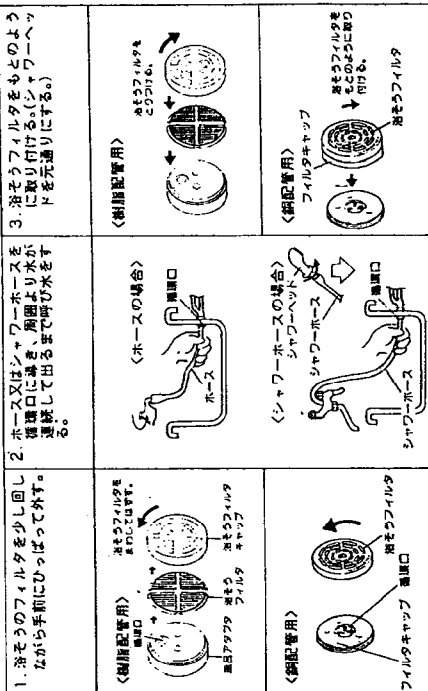 1. 浴そうのフィルタを少し回し
ながら手前にひっぱって外す。
〈樹脂配管用〉
循環口
浴そうフィルタを
まわしてはずす。
風呂アダプタ
浴そう
フィルタ
浴そうフィルタ
キャップ
〈銅配管用〉
フィルタキャップ
循環口
浴そうフィルタ
2. ホース又はシャワーホースを
循環口に導き、周囲より水が
連続して出るまで呼び水をす
る。
〈ホースの場合〉
循環口
ホース
〈シャワーホースの場合〉
シャワーヘッド
シャワーホース
循環口
シャワーホース
3. 浴そうフィルタをもとのよう
に取り付ける。(シャワーヘッ
ドを元通りにする。)
〈樹脂配管用〉
浴そうフィルタを
とりつける。
〈銅配管用〉
フィルタキャップ
浴そうフィルタを
もとのように取り
付ける。
浴そうフィルタ